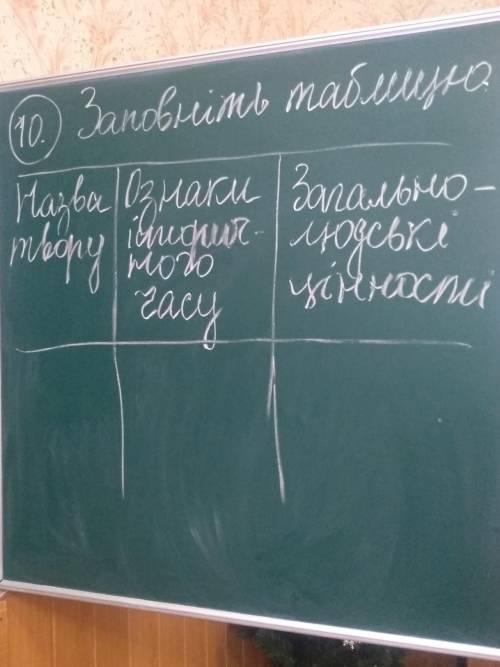 10. Заповніть таблицю.
Назва
твору
Ознаки
історич-
ного
часу
Загально-
людські
цінності